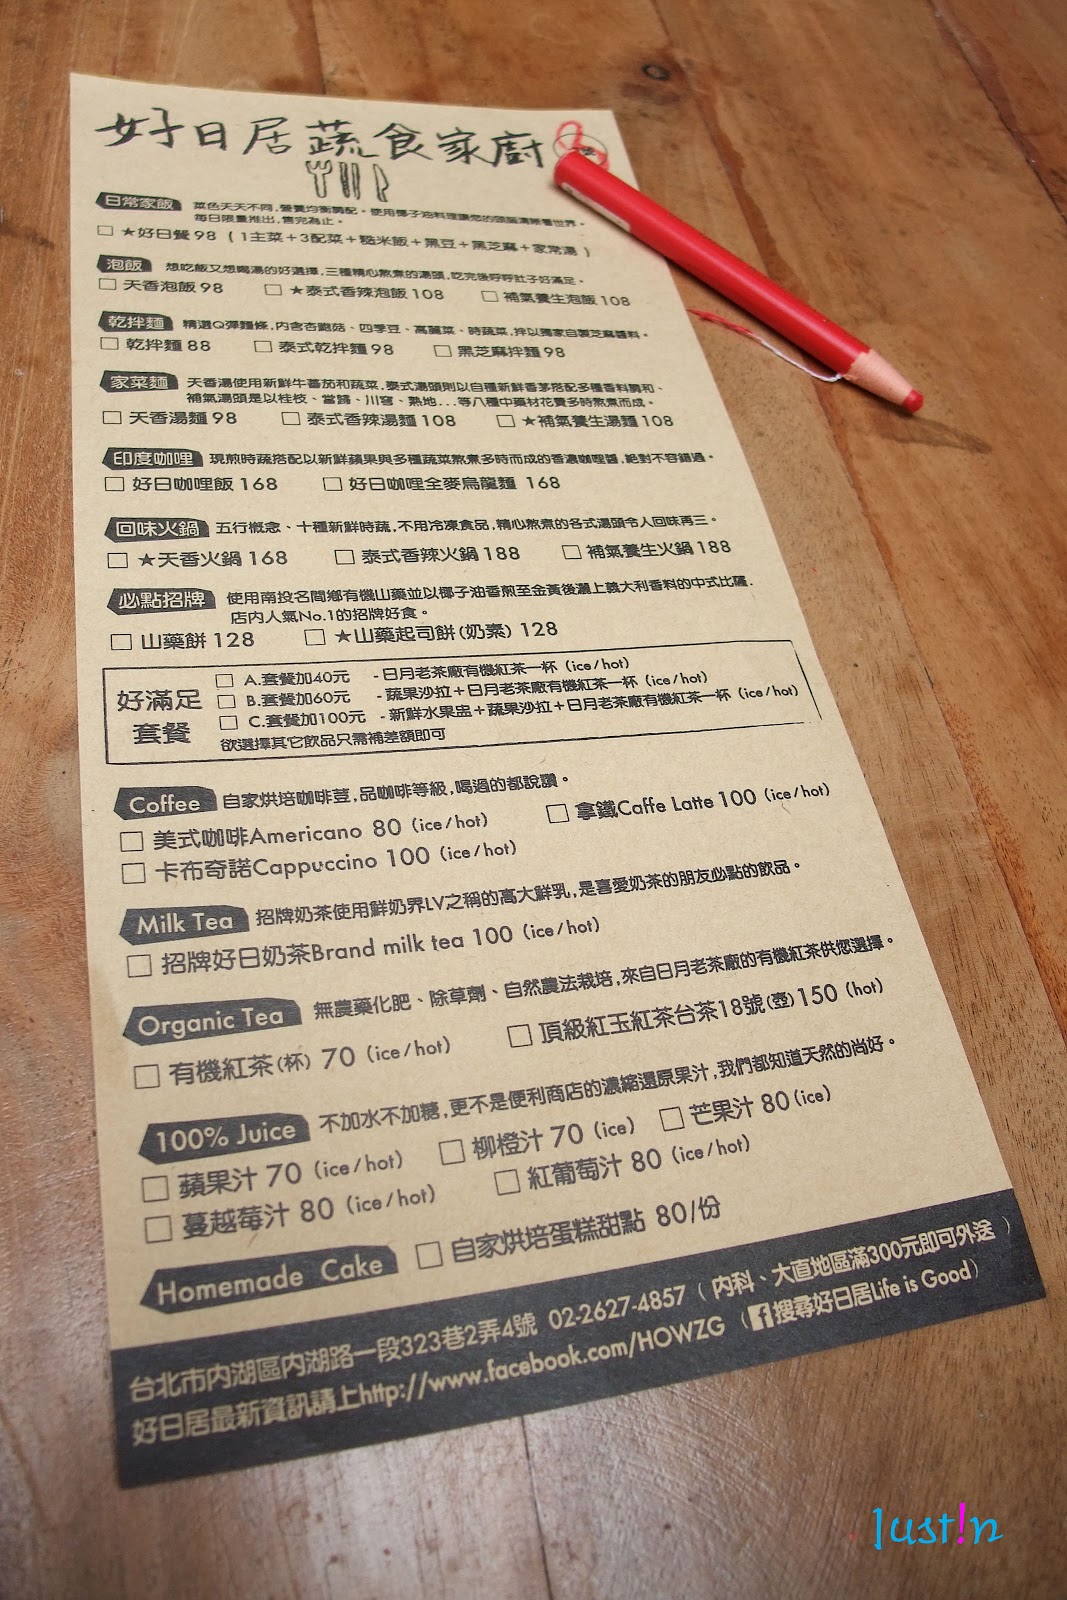 好日居蔬食家廚
日常家飯 菜色天天不同,營養均衡調配。使用椰子油料理讓您的頭腦清晰看世界。
每日限量推出,售完為止。
□ ★好日餐 98 ( 1主菜+3配菜+糙米飯+黑豆+黑芝麻+家常湯 )
泡飯 想吃飯又想喝湯的好選擇,三種精心熬煮的湯頭,吃完後呼呼肚子好滿足。
□ 天香泡飯 98 □ ★泰式香辣泡飯 108 □ 補氣養生泡飯 108
乾拌麵 精選Q彈麵條,內含杏鮑菇、四季豆、高麗菜、時蔬菜,拌以獨家自製芝麻醬料。
□ 乾拌麵 88 □ 泰式乾拌麵 98 □ 黑芝麻拌麵 98
家菜麵 天香湯使用新鮮牛蕃茄和蔬菜,泰式湯頭則以自種新鮮香茅搭配多種香料調和、
補氣湯頭是以桂枝、當歸、川芎、熟地...等八種中藥材花費多時熬煮而成。
□ 天香湯麵 98 □ 泰式香辣湯麵 108 □ ★補氣養生湯麵 108
印度咖哩 現煎時蔬搭配以新鮮蘋果與多種蔬菜熬煮多時而成的香濃咖哩醬,絕對不容錯過。
□ 好日咖哩飯 168 □ 好日咖哩全麥烏龍麵 168
回味火鍋 五行概念、十種新鮮時蔬,不用冷凍食品,精心熬煮的各式湯頭令人回味再三。
□ ★天香火鍋 168 □ 泰式香辣火鍋 188 □ 補氣養生火鍋 188
必點招牌 使用南投名間鄉有機山藥並以椰子油香煎至金黃後灑上義大利香料的中式比薩.
店內人氣No.1的招牌好食。
□ 山藥餅 128 □ ★山藥起司餅(奶素) 128
好滿足套餐
□ A.套餐加40元 - 日月老茶廠有機紅茶一杯 (ice/hot)
□ B.套餐加60元 - 蔬果沙拉+日月老茶廠有機紅茶一杯 (ice/hot)
□ C.套餐加100元 - 新鮮水果盅+蔬果沙拉+日月老茶廠有機紅茶一杯 (ice/hot)
欲選擇其它飲品只需補差額即可
Coffee 自家烘培咖啡荳,品咖啡等級,喝過的都說讚。
□ 美式咖啡Americano 80 (ice/hot) □ 拿鐵Caffe Latte 100 (ice/hot)
□ 卡布奇諾Cappuccino 100 (ice/hot)
Milk Tea 招牌奶茶使用鮮奶界LV之稱的高大鮮乳,是喜愛奶茶的朋友必點的飲品。
□ 招牌好日奶茶Brand milk tea 100 (ice/hot)
Organic Tea 無農藥化肥、除草劑、自然農法栽培,來自日月老茶廠的有機紅茶供您選擇。
□ 有機紅茶(杯) 70 (ice/hot) □ 頂級紅玉紅茶台茶18號(壺)150 (hot)
100% Juice 不加水不加糖,更不是便利商店的濃縮還原果汁,我們都知道天然的尚好。
□ 蘋果汁 70 (ice/hot) □ 柳橙汁 70 (ice) □ 芒果汁 80(ice)
□ 蔓越莓汁 80 (ice/hot) □ 紅葡萄汁 80 (ice/hot)
Homemade Cake □ 自家烘培蛋糕甜點 80/份
台北市內湖區內湖路一段323巷2弄4號 02-2627-4857 ( 內科、大直地區滿300元即可外送 )
好日居最新資訊請上http://www.facebook.com/HOWZG (f搜尋好日居Life is Good)
Just!n